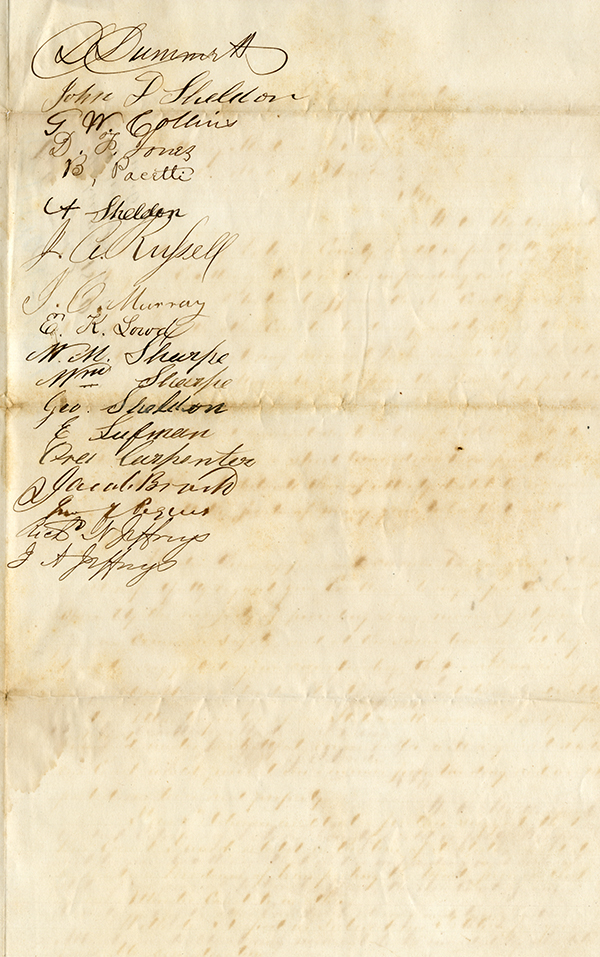 D Dummett
John D Sheldon
G. W. Collins
D. F. Jones
B, Pacetti
A Sheldon
J. A. Russell
J. C. Murray
E. K. Lowd
W. M. Sharpe
Wm Sharpe
Geo. Sheldon
E Lufman
Ores Carpenter
Jacob Brock
Richd N Jeffrys
J A Jeffrys